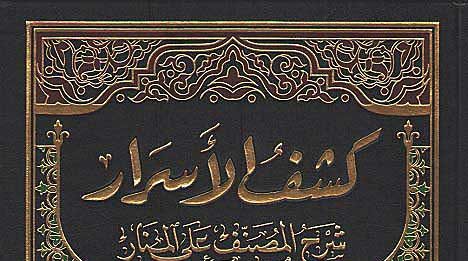 كشف الأسرار
شرح المصنف على المنار